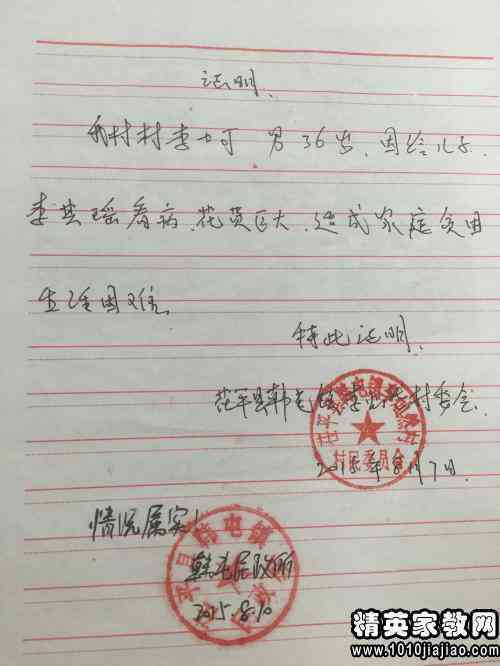 证明
我村村李士可 男 36岁、因给儿子
李其瑶看病,花费巨大,造成家庭负困
生活困难
特此证明
茌平县韩屯镇李 村委会
村民委员会
2015年8月7日
情况属实!
韩屯民政所
2015.8.10
精英家教网
www.1010jiajiao.com